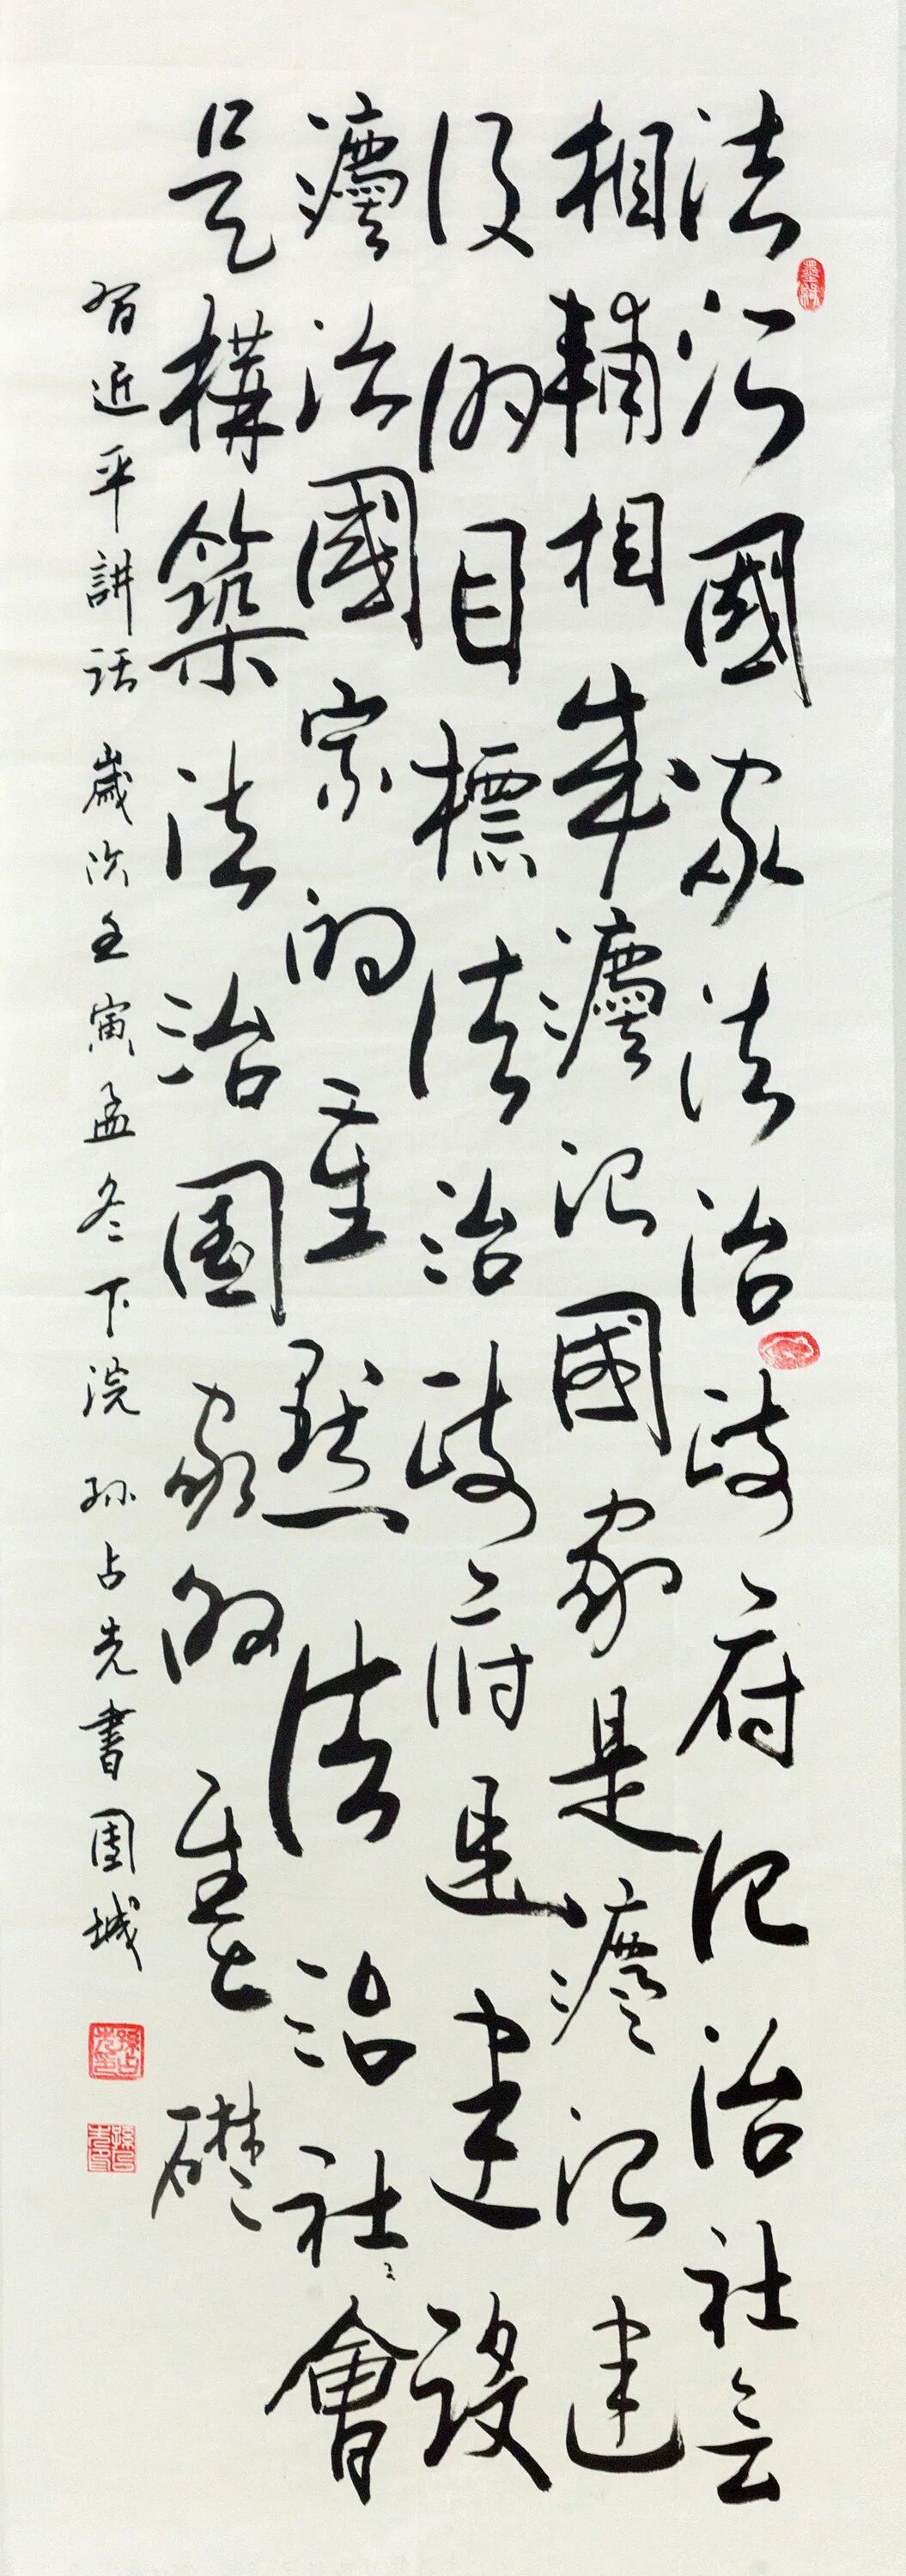 法治國家法治政府法治社会
相輔相成灋治國家是灋治建
设的目標法治政府是建設
灋治國家的重點法治社會
是構築法治國家的基礎
習近平講话 歲次壬寅孟冬下浣 孙占先書 城